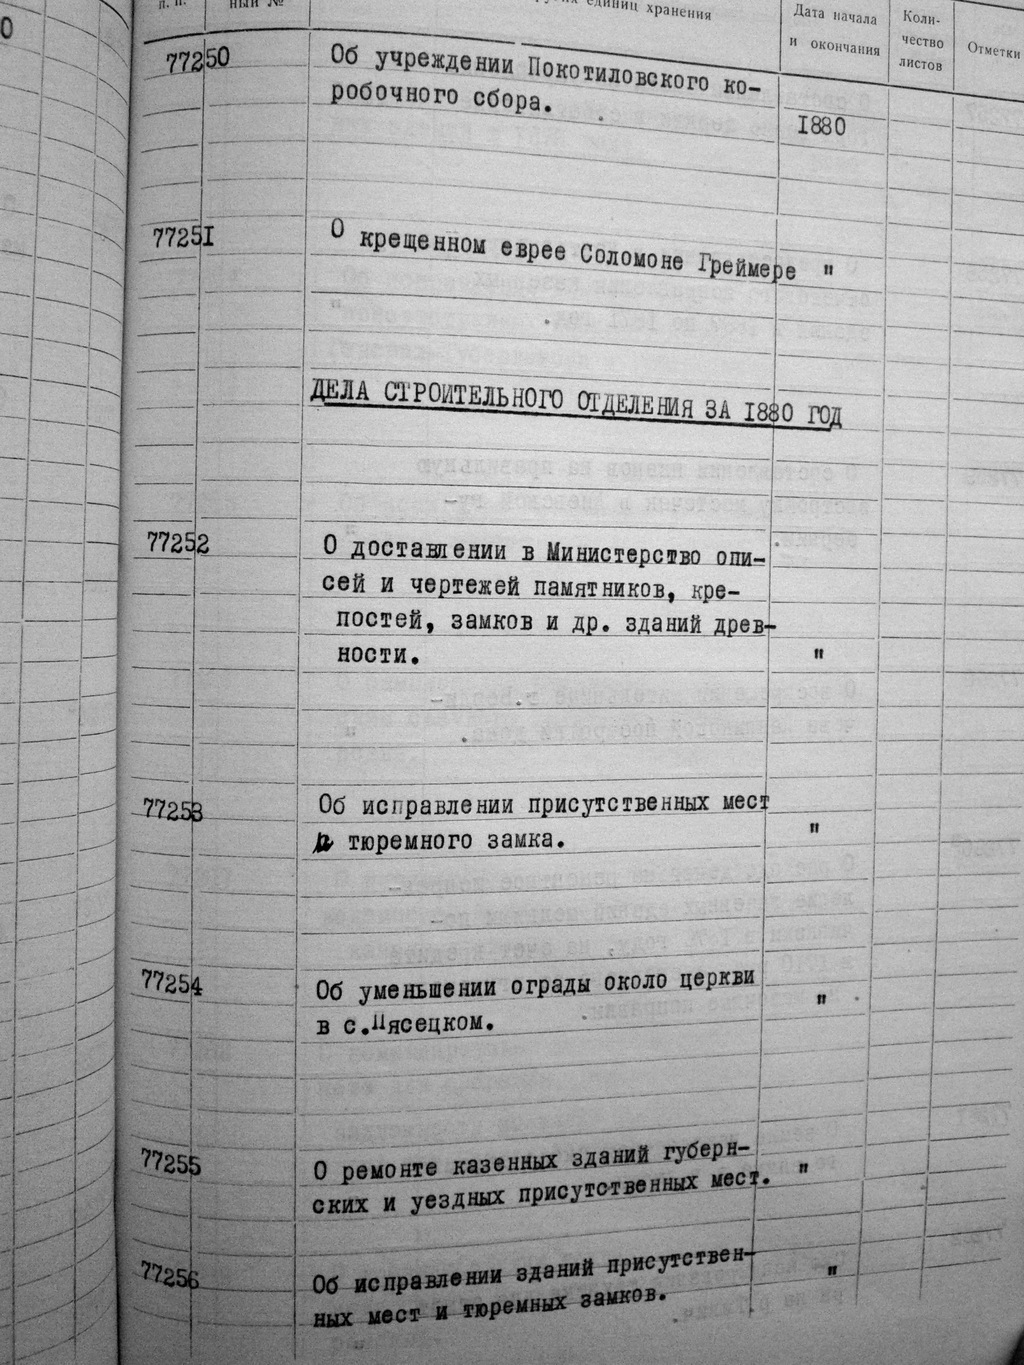 п. п.
ный №
единиц хранения
Дата начала
и окончания
Коли-
чество
листов
Отметки
77250
Об учреждении Покотиловского ко-
робочного сбора.
1880
77251
О крещенном еврее Соломоне Греймере "
ДЕЛА СТРОИТЕЛЬНОГО ОТДЕЛЕНИЯ ЗА 1880 ГОД
77252
О доставлении в Министерство опи-
сей и чертежей памятников, кре-
постей, замков и др. зданий древ-
ности. "
77253
Об исправлении присутственных мест
и тюремного замка. "
77254
Об уменьшении ограды около церкви
в с.Пясецком. "
77255
О ремонте казенных зданий губерн-
ских и уездных присутственных мест. "
77256
Об исправлении зданий присутствен-
ных мест и тюремных замков. "